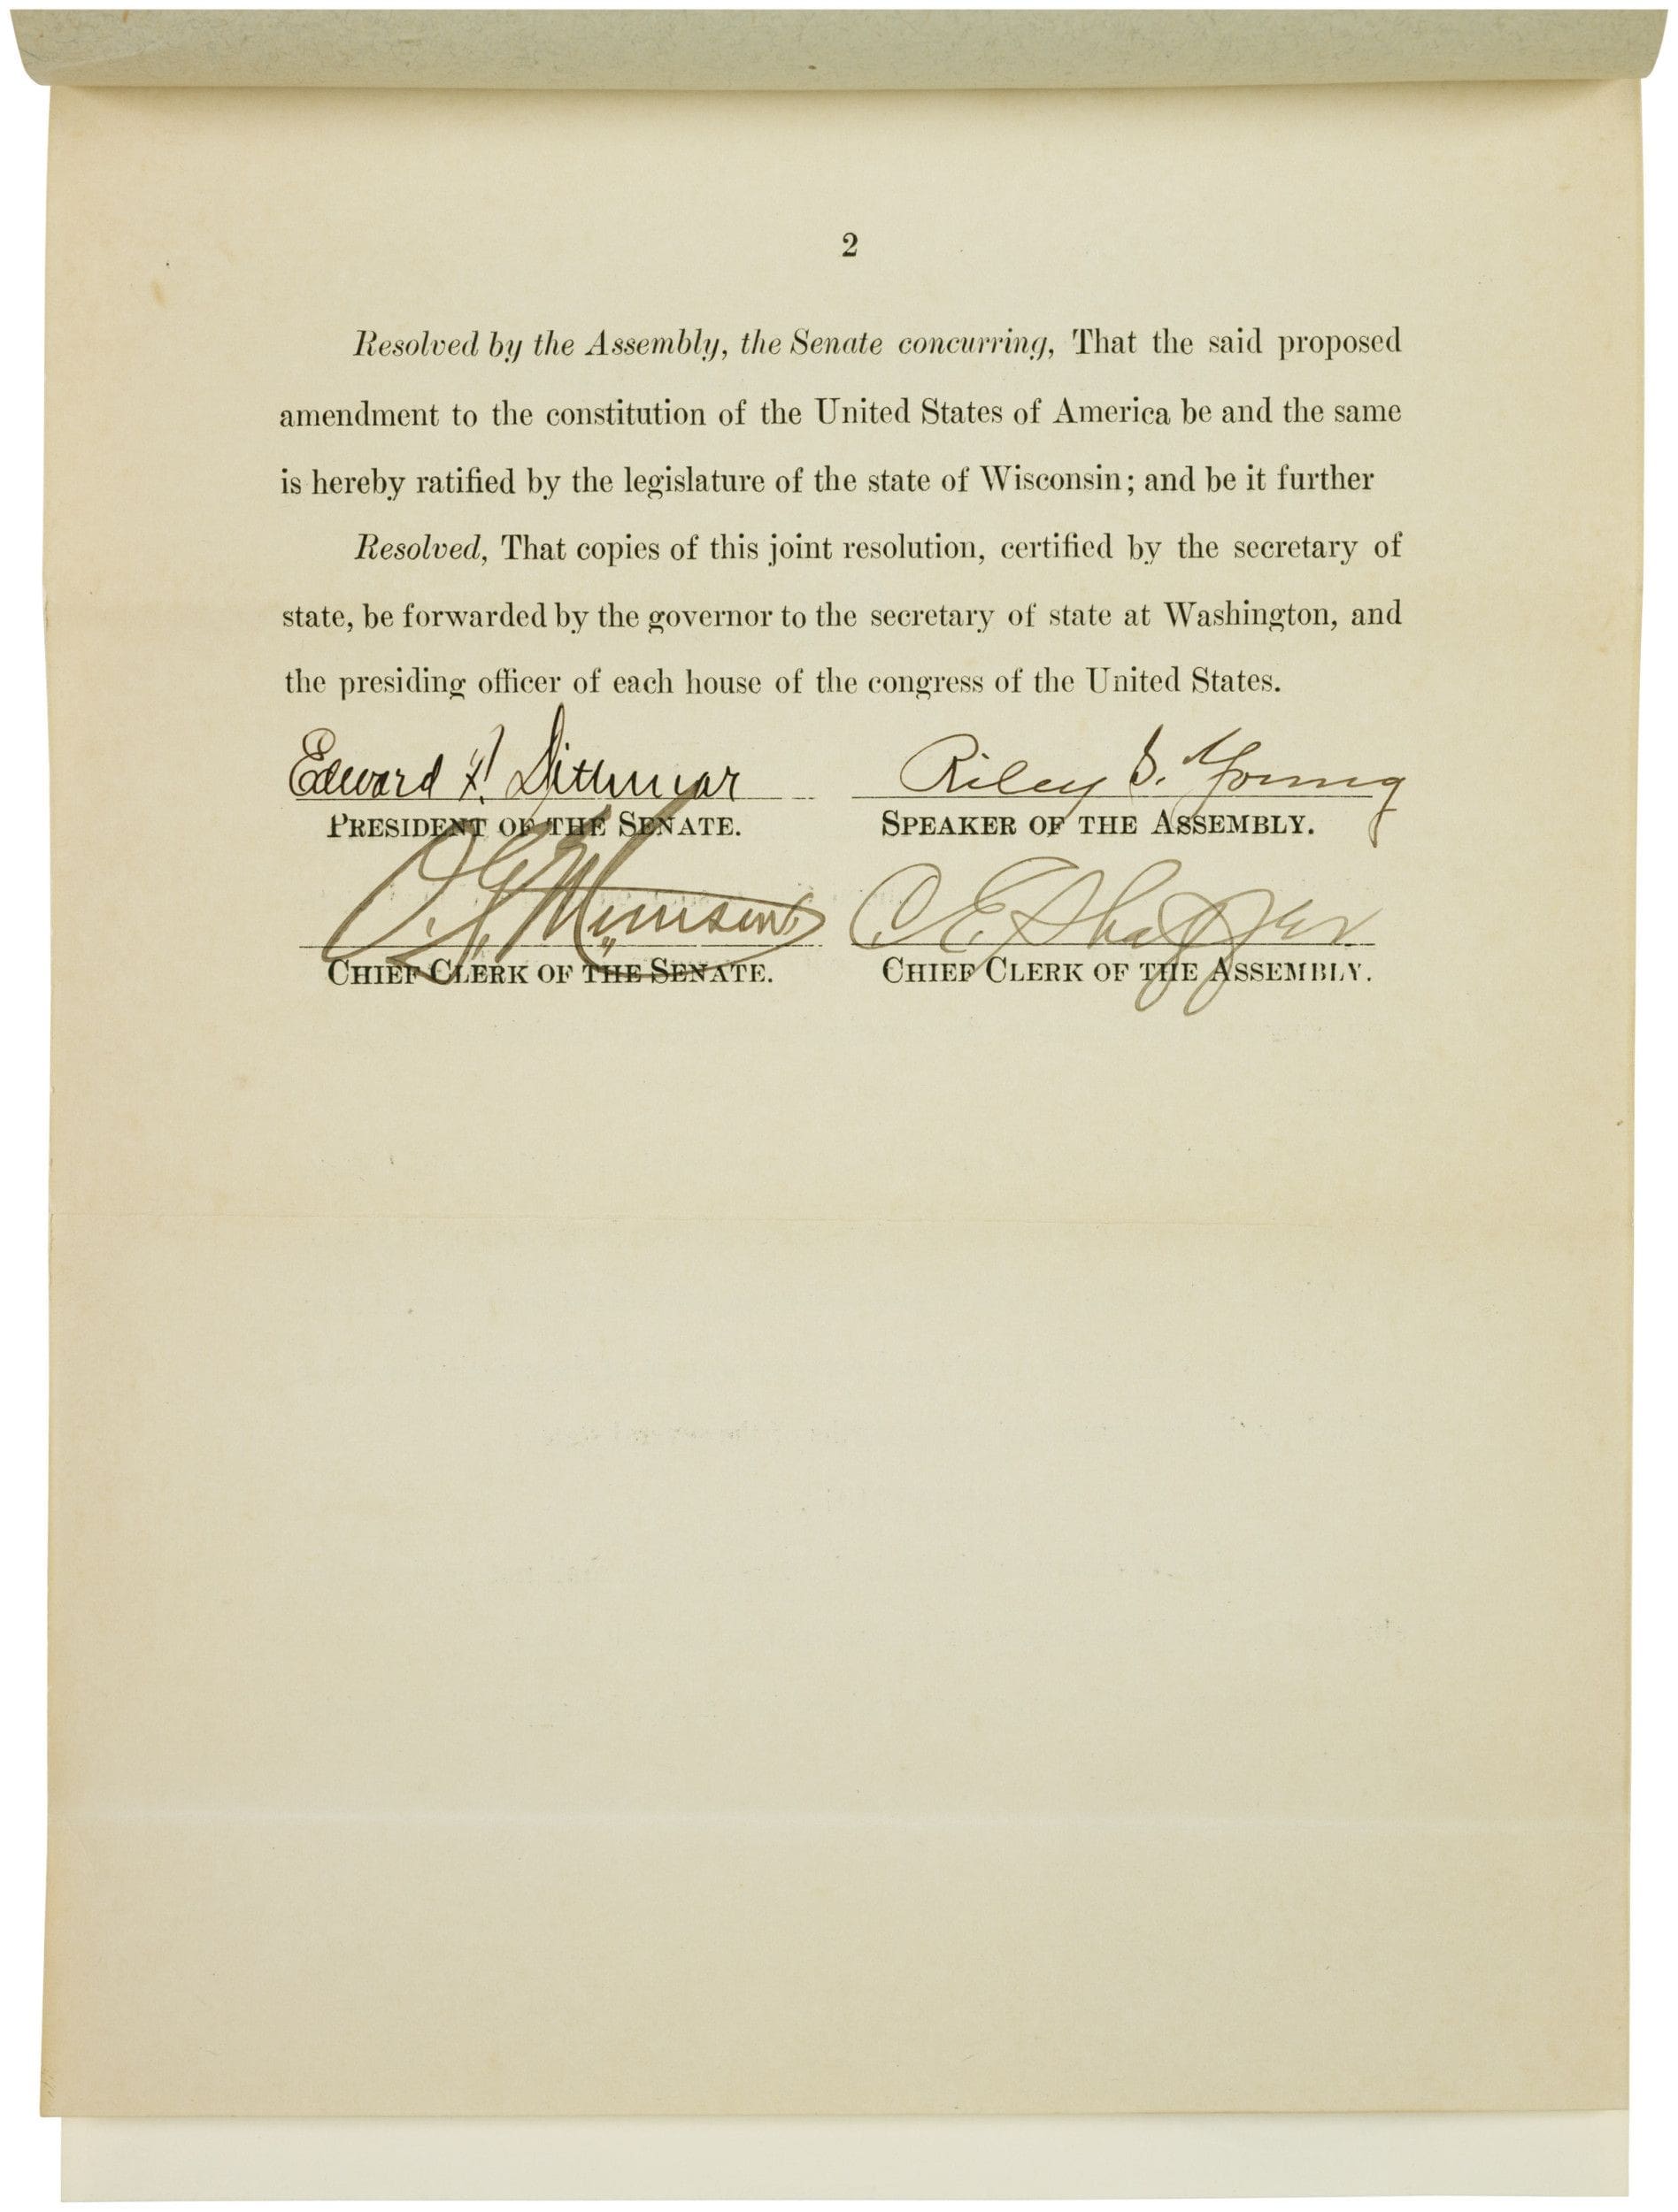 2
Resolved by the Assembly, the Senate concurring, That the said proposed
amendment to the constitution of the United States of America be and the same
is hereby ratified by the legislature of the state of Wisconsin; and be it further
Resolved, That copies of this joint resolution, certified by the secretary of
state, be forwarded by the governor to the secretary of state at Washington, and
the presiding officer of each house of the congress of the United States.
Edward F. Dithmar
PRESIDENT OF THE SENATE.
Riley S. Young
SPEAKER OF THE ASSEMBLY.
O. G. Munson
CHIEF CLERK OF THE SENATE.
C E Shaffer
CHIEF CLERK OF THE ASSEMBLY.